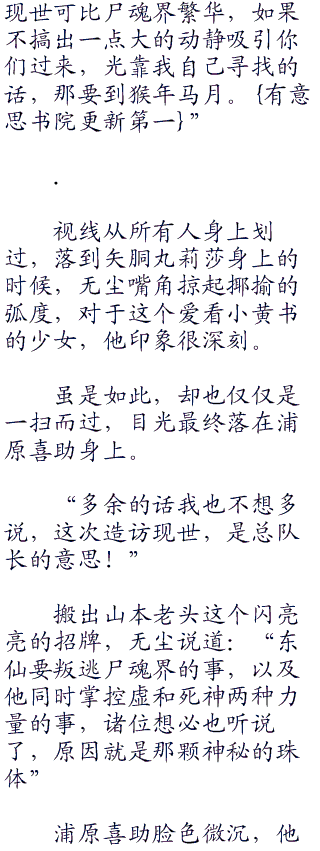 现世可比尸魂界繁华，如果
不搞出一点大的动静吸引你
们过来，光靠我自己寻找的
话，那要到猴年马月。{有意
思书院更新第一}”
.
视线从所有人身上划
过，落到矢胴丸莉莎身上的
时候，无尘嘴角掠起揶揄的
弧度，对于这个爱看小黄书
的少女，他印象很深刻。
虽是如此，却也仅仅是
一扫而过，目光最终落在浦
原喜助身上。
“多余的话我也不想多
说，这次造访现世，是总队
长的意思！”
搬出山本老头这个闪亮
亮的招牌，无尘说道：“东
仙要叛逃尸魂界的事，以及
他同时掌控虚和死神两种力
量的事，诸位想必也听说
了，原因就是那颗神秘的珠
体”
浦原喜助脸色微沉，他